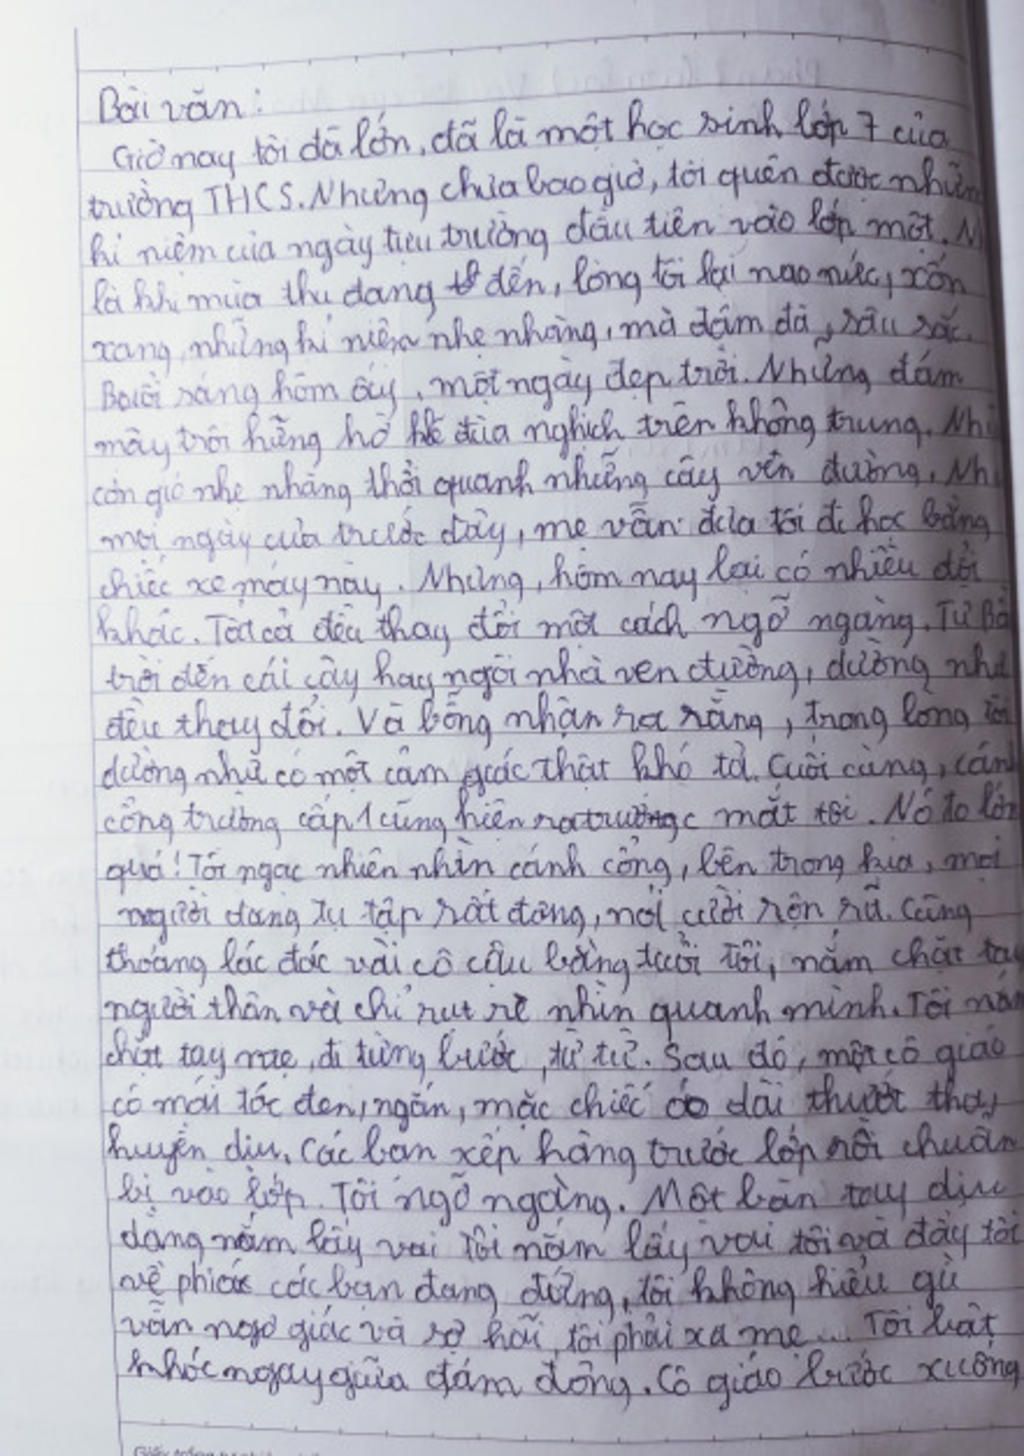 Bài văn:
Giờ nay tôi đã lớn, đã là một học sinh lớp 7 của
trường THCS. Nhưng chưa bao giờ, tôi quên được những
kỉ niệm của ngày tựu trường đầu tiên vào lớp một.
là khi mùa thu đang đến, lòng tôi lại nao nức, xốn
xang, những kỉ niệm nhẹ nhàng, mà đậm đà, sâu sắc.
Buổi sáng hôm ấy, một ngày đẹp trời. Những đám
mây trôi hững hờ đùa nghịch trên không trung.
cơn gió nhẹ nhàng thổi quanh những cây vên đường.
mọi ngày của trước đây, mẹ vẫn đưa tôi đi học bằng
chiếc xe máy này. Nhưng, hôm nay lại có nhiều đổi
khác. Tất cả đều thay đổi một cách ngỡ ngàng. Từ
trời đến cái cây hay ngôi nhà ven đường, dường như
đều thay đổi. Và bỗng nhận ra rằng, trong lòng tôi
dường như có một cảm giác thật khó tả. Cuối cùng, cánh
cổng trường cấp 1 cũng hiện ra trước mắt tôi. Nó to lớn
quá! Tôi ngạc nhiên nhìn cánh cổng, bên trong kia, mọi
người đang tụ tập rất đông, nói cười rộn rã. Cũng
thoáng lác đác vài cô cậu bằng tuổi tôi, nắm chặt tay
người thân và chỉ rụt rè nhìn quanh mình. Tôi nắm
chặt tay mẹ, đi từng bước, từ từ. Sau đó, một cô giáo
có mái tóc đen, ngắn, mặc chiếc áo dài thướt tha,
huyền dịu. Các bạn xếp hàng trước lớp rồi chuẩn
bị vào lớp. Tôi ngỡ ngàng. Một bàn tay dịu
dàng nắm lấy vai tôi nắm lấy vai tôi và đẩy tôi
về phía các bạn đang đứng, tôi không hiểu gì
vẫn ngơ giác và sợ hãi, tôi phải xa mẹ... Tôi bật
khóc ngay giữa đám đông. Cô giáo bước xuống